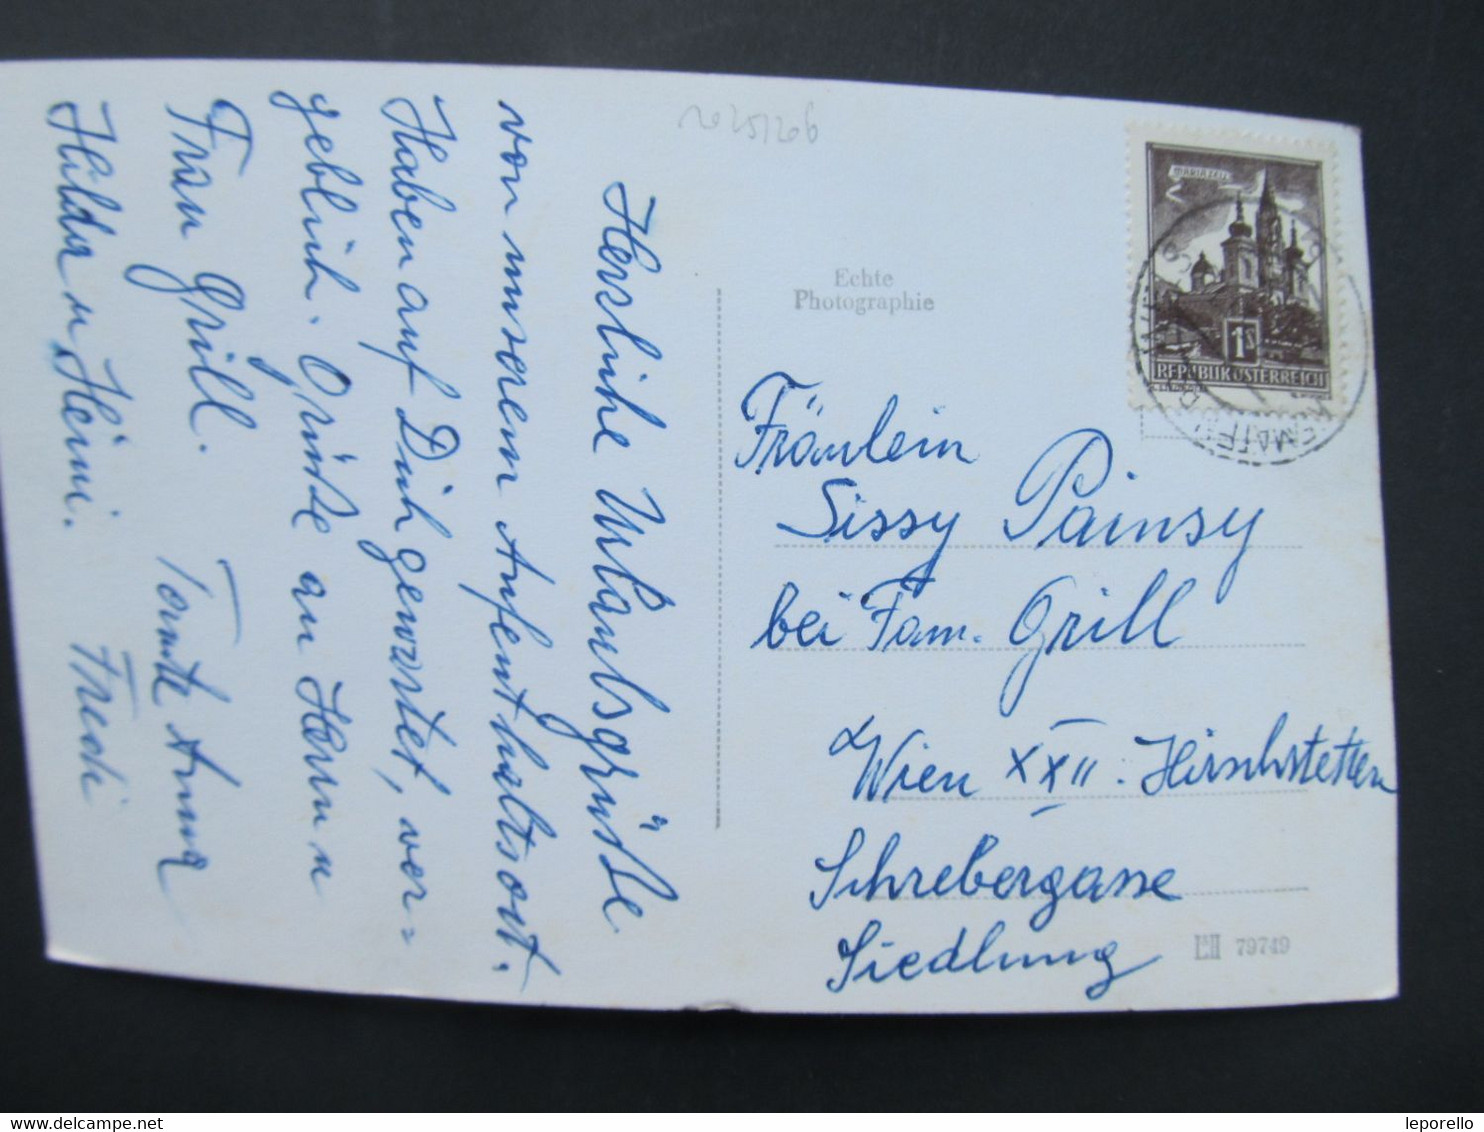 Herzliche Urlaubsgrüße
von unserem Aufenthaltsort.
Haben auf Dich gewartet, ver=
geblich. Grüße an Herrn u
Frau Grill. Tante Anna
Hilda u Heini. Fredi
Echte
Photographie
MARIAZELL
1S
REPUBLIK ÖSTERREICH
Fräulein
Sissy Painsy
bei Fam. Grill
Wien XXII. Hirschstetten
Schrebergasse
Siedlung
79749
leporello